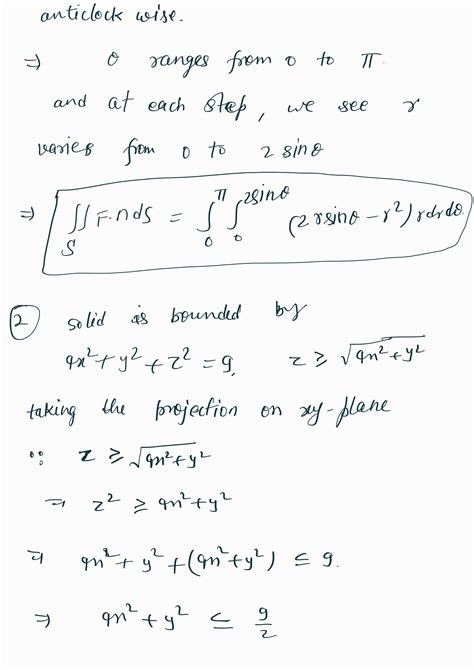 anticlock wise.
⇒ θ ranges from 0 to π.
and at each step, we see r
varies from 0 to 2 sinθ
⇒ ∬_S F.n dS = ∫_0^π ∫_0^{2sinθ} (2rsinθ - r²) r dr dθ.
② solid is bounded by
9x² + y² + z² = 9, z ≥ √(9x² + y²)
taking the projection on xy-plane
∵ z ≥ √(9x² + y²)
⇒ z² ≥ 9x² + y²
⇒ 9x² + y² + (9x² + y²) ≤ 9.
⇒ 9x² + y² ≤ 9/2